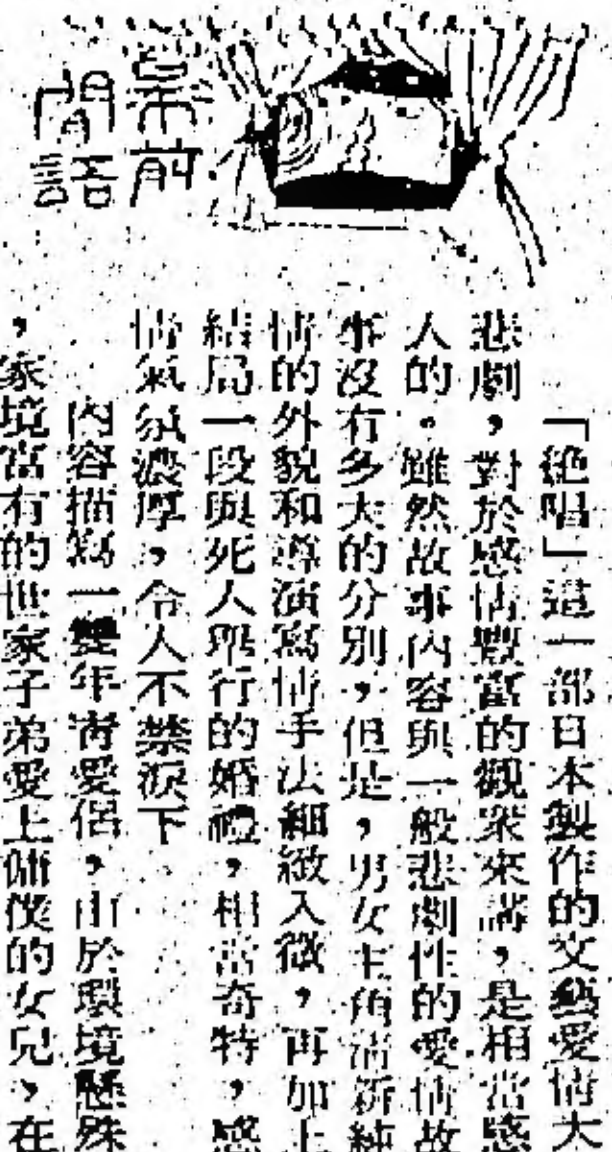 幕前
閒語
「絶唱」這一部日本製作的文藝愛情大
悲劇，對於感情豐富的觀衆來講，是相當感
人的。雖然故事內容與一般悲劇性的愛情故
事沒有多大的分別，但是，男女主角清新純
情的外貌和導演寫情手法細緻入微，再加上
結局一段與死人舉行的婚禮，相當奇特，感
情氣氛濃厚，令人不禁淚下
內容描寫一雙年靑愛侶，由於環境懸殊
，家境富有的世家子弟愛上傭僕的女兒，在